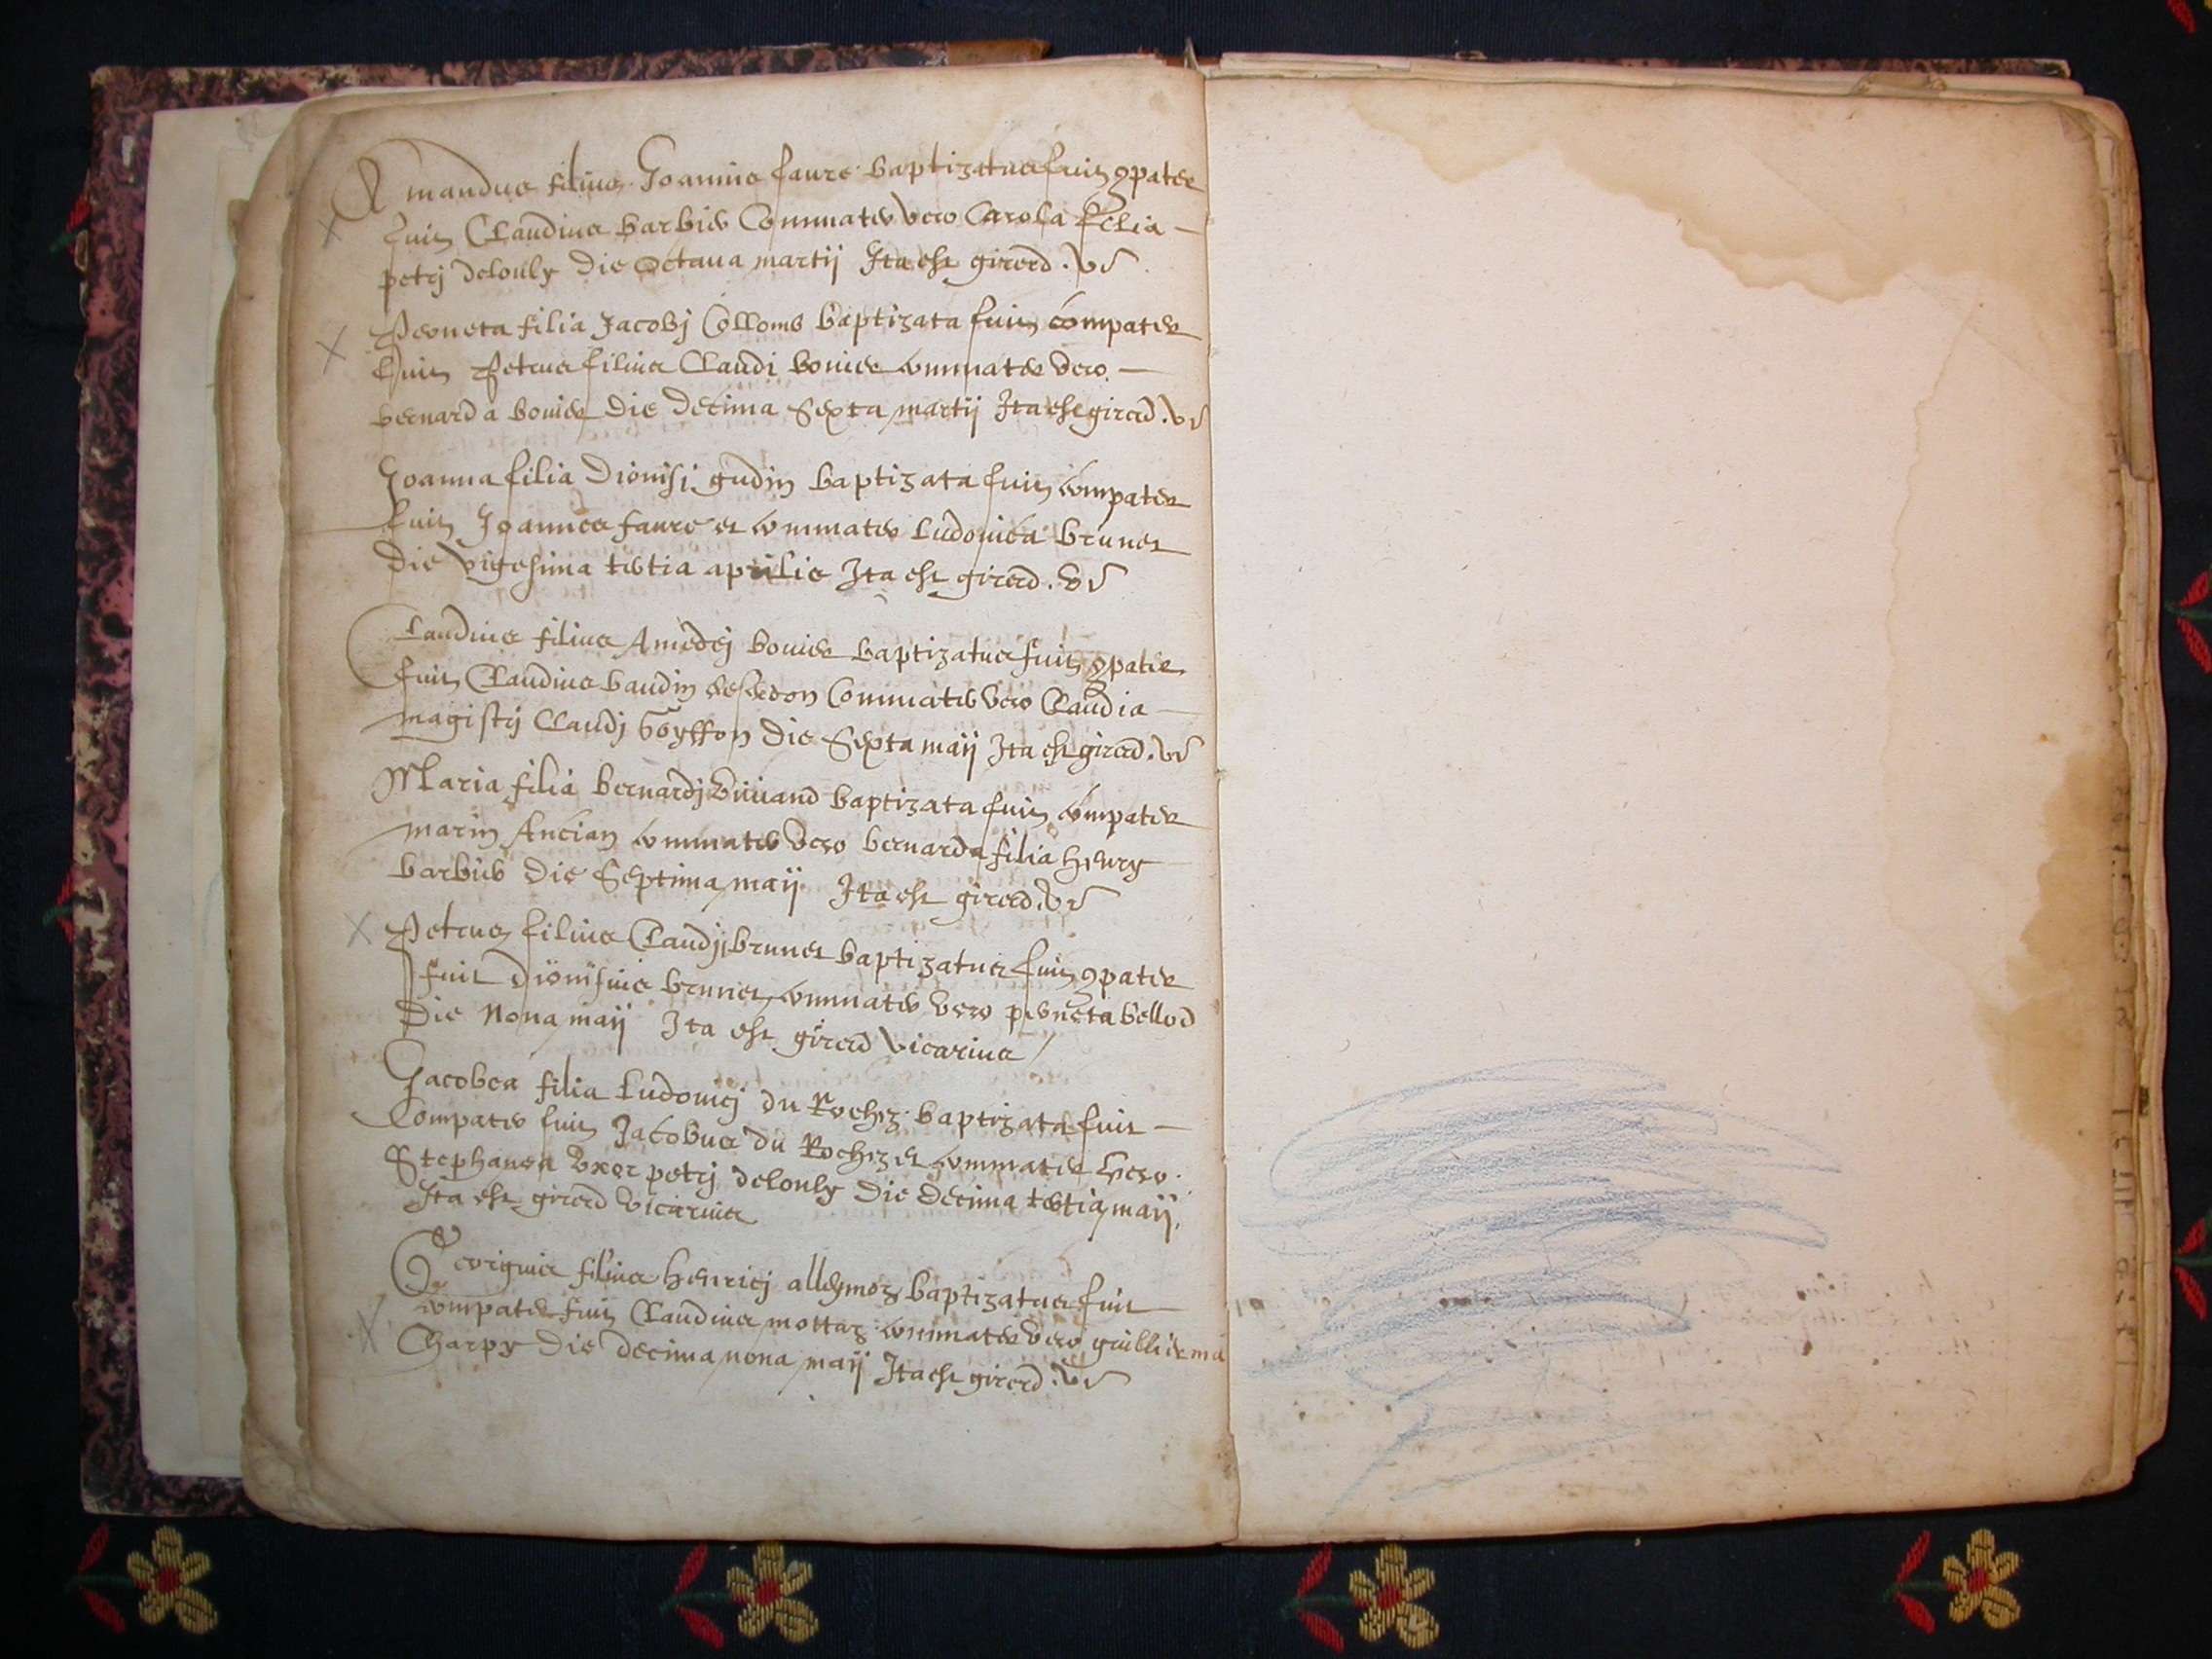 Amandus filius Joannis faure baptizatus fuit 9pater
fuit Claudius barbier Commater vero Carola filia
petrj delouly die octaua martij Ita est girerd. vr
Peroneta filia Jacobj Collomb baptizata fuit compater
fuit Petrus filius Claudi bouier commater vero
bernarda bouier die decima sexta martij Ita est girerd. vr
Joanna filia Dionisi gudin baptizata fuit compater
fuit Joannes faure et commater Ludouica brunet
die vigesima tertia aprilis Ita est girerd. vr
Claudius filius Amedej bouier baptizatus fuit 9pater
fuit Claudius baudin Commater vero Claudia
magistri Claudj goyffon die Sexta maij Ita est girerd. vr
Maria filia bernardj baptizata fuit compater
marin Ancian commater vero bernarda filia henry
barbier die Septima maij Ita est girerd. vr
Petrus filius Claudij brunet baptizatus fuit 9pater
fuit dionisius brunet commater vero perneta bellod
die Nona maij Ita est girerd vicarius
Jacobea filia Ludouicj du Rochez baptizata fuit
Compater fuit Jacobus du Rochez et commater vero
Stephanea vxor petrj delouly die decima tertia maij
Ita est girerd vicarius
Georgius filius henricj alleymoz baptizatus fuit
compater fuit Claudius mottaz commater vero guilliema
Charpy die decima nona maij Ita est girerd. vr